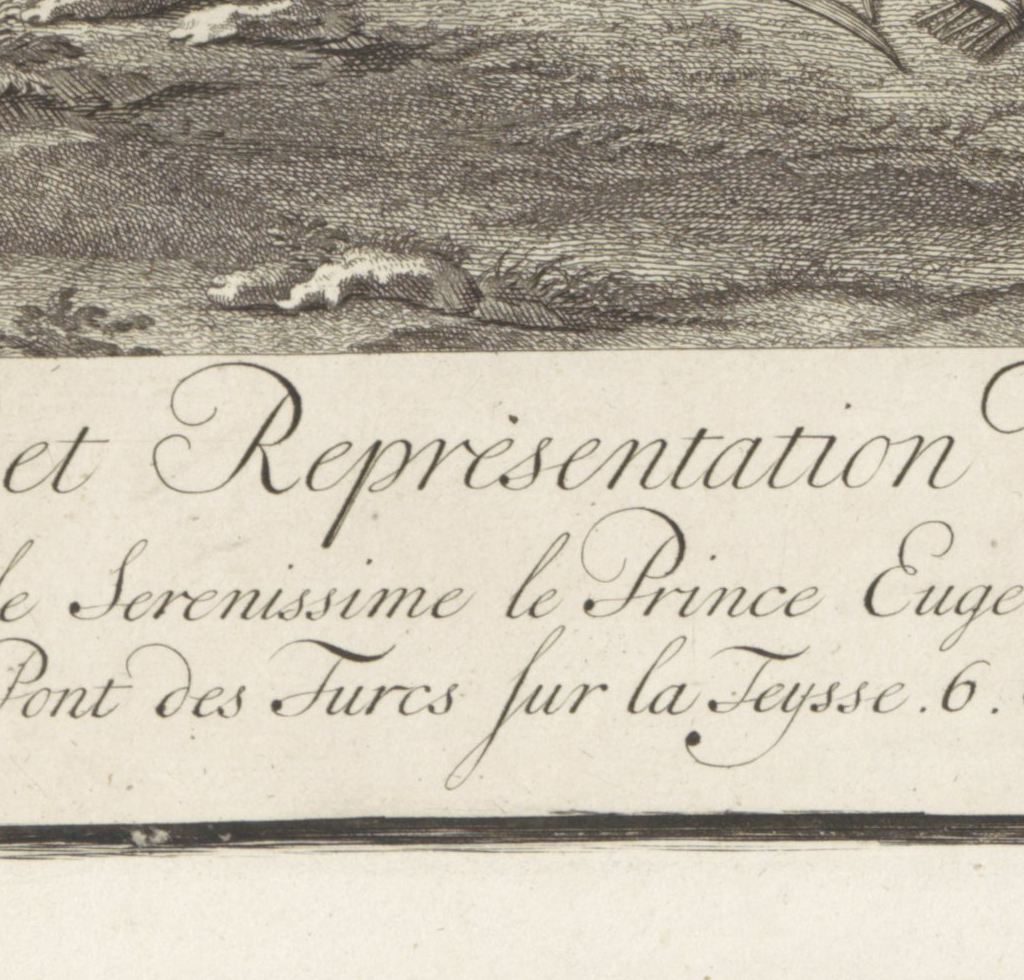 et Représentation
le Serenissime le Prince Euge
Pont des Turcs sur la Teysse. 6.